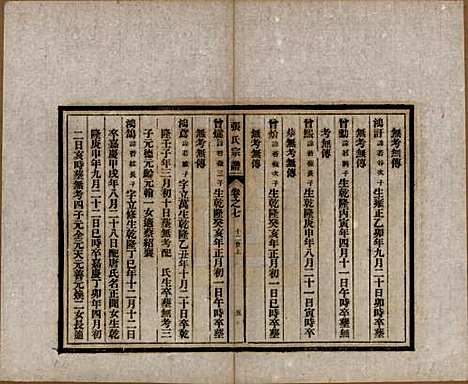 鴻訏諱若谷次子生雍正乙卯年九月二十日卯時卒墓
無考無傳
曾勳諱若 長子生乾隆丙寅年四月十一日午時卒墓
無考無傳
曾熙諱若 次子生乾隆庚申年八月二十一日寅時卒
墓無考無傳
曾 諱若 次子生乾隆癸亥年正月初一日巳時卒墓
無考無傳
張氏宗譜
卷之七
曾 諱若 三子生乾隆癸亥年正月初一日午時卒墓
無考無傳
鴻 諱若 子字立萬生乾隆乙丑年十月二十日卒
隆壬子年三月初十日墓無考配 氏生卒墓無考三
子元德元齡元翰一女適蔡紹裘
鴻 諱若 長子字立修生乾隆丁巳年十二月十二日
卒嘉慶甲戌年八月二十八日配唐氏名正聞女生乾
隆庚申年九月二十二日巳時卒嘉慶丁卯年四月初
二日亥時墓無考四子元全元天元善元煥一女長適